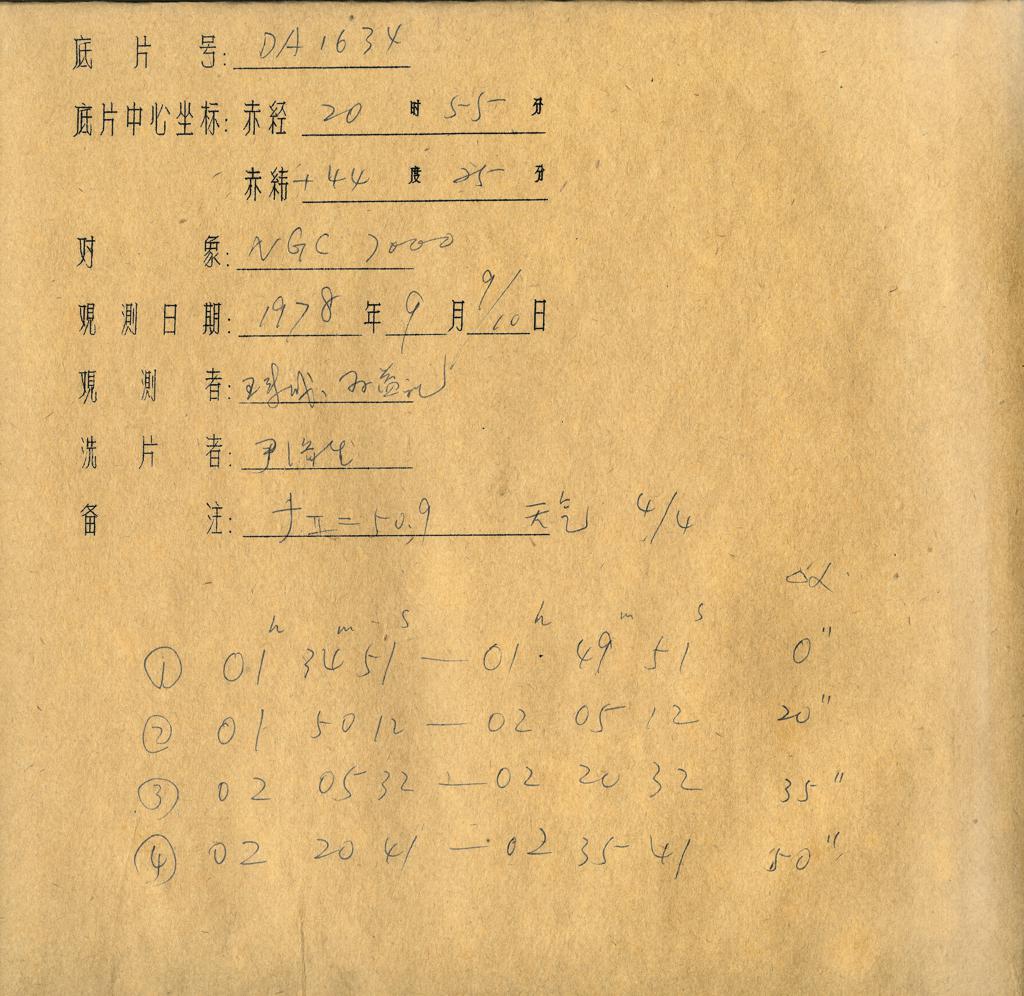 底片号: DA1634
底片中心坐标: 赤经 20 时 55 分
赤纬 +44 度 25 分
对象: NGC 7000
观测日期: 1978 年 9 月 9/10 日
观测者: 王 、孙益礼
洗片者: 尹
备注: = 50.9 天气 4/4
Δα
h m s h m s
① 01 34 51 — 01 49 51 0"
② 01 50 12 — 02 05 12 20"
③ 02 05 32 — 02 20 32 35"
④ 02 20 41 — 02 35 41 50"